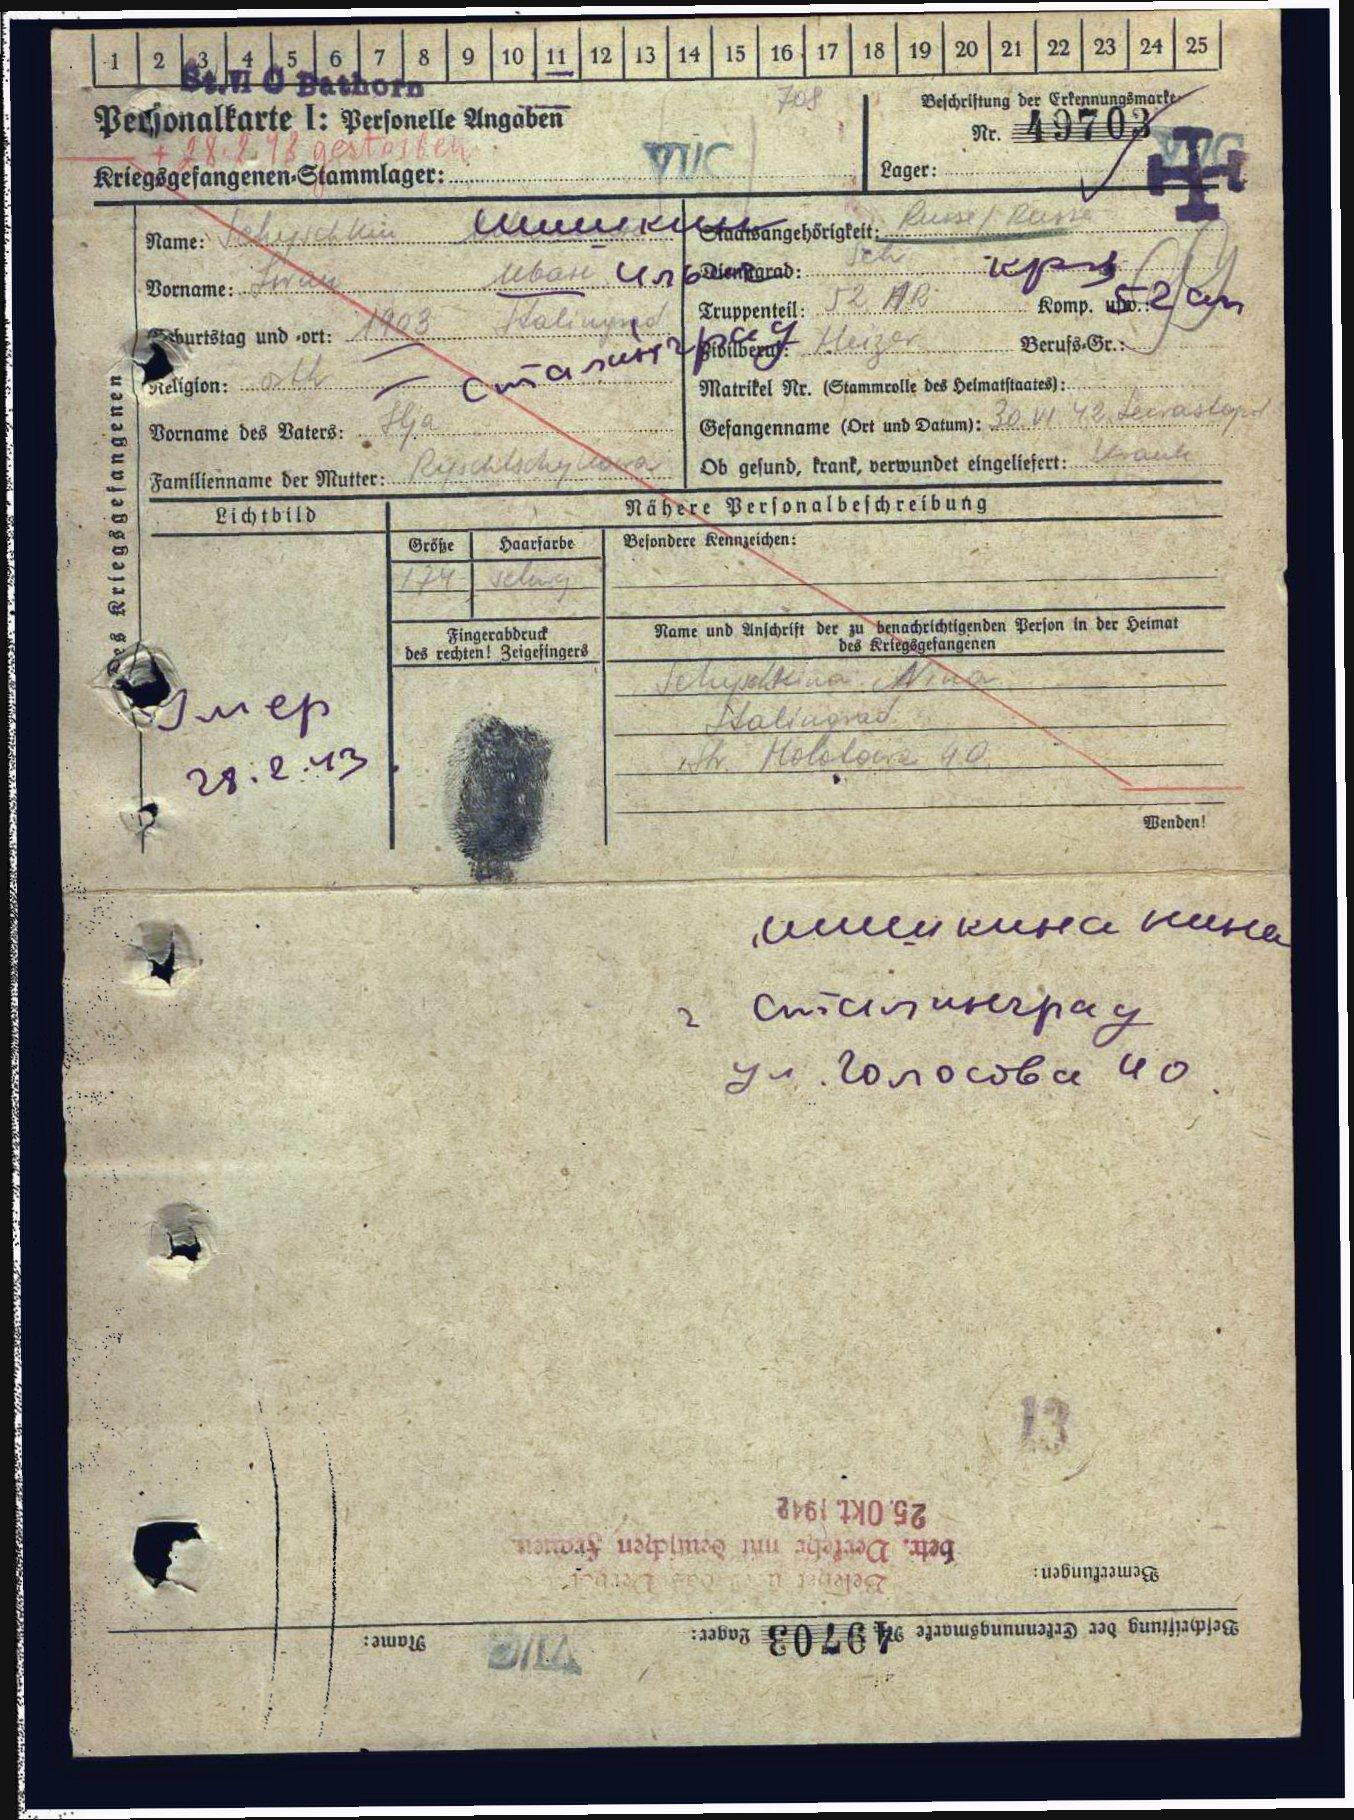 1 2 3 4 5 6 7 8 9 10 11 12 13 14 15 16 17 18 19 20 21 22 23 24 25
St. VI C Bathorn
708
Personalkarte I: Personelle Angaben
Beschriftung der Erkennungsmarke
Nr. 49703
+ 28.2.43 gestorben
VI/C
VI/C
Kriegsgefangenen-Stammlager:
Lager:
des Kriegsgefangenen
Name: Schyschkin Шишкин
Vorname: Iwan Иван Илья
Geburtstag und -ort: 1903 Stalingrad
Сталинград
Religion: orth
Vorname des Vaters: Ilja
Familienname der Mutter:
Staatsangehörigkeit: Russe / Russe
Dienstgrad: кр-ц
Truppenteil: 52 AR Komp. usw.: 52 ап
Zivilberuf: Heizer Berufs-Gr.:
Matrikel Nr. (Stammrolle des Heimatstaates):
Gefangenname (Ort und Datum): 30 VI 42 Sewastopol
Ob gesund, krank, verwundet eingeliefert: krank
Lichtbild
Nähere Personalbeschreibung
Größe Haarfarbe Besondere Kennzeichen:
174 schwz
Fingerabdruck
des rechten! Zeigefingers
Name und Anschrift der zu benachrichtigenden Person in der Heimat
des Kriegsgefangenen
Schyschkina Nina
Stalingrad
Str. Holosowa 40
Умер
28.2.43
Wenden!
Шишкина Нина
г Сталинград
ул. Голосова 40
13
25. Okt. 1942
betr. Verkehr mit deutschen Frauen
Bemerkungen:
Beschriftung der Erkennungsmarke Nr. 49703 Lager: VI/C
Name: